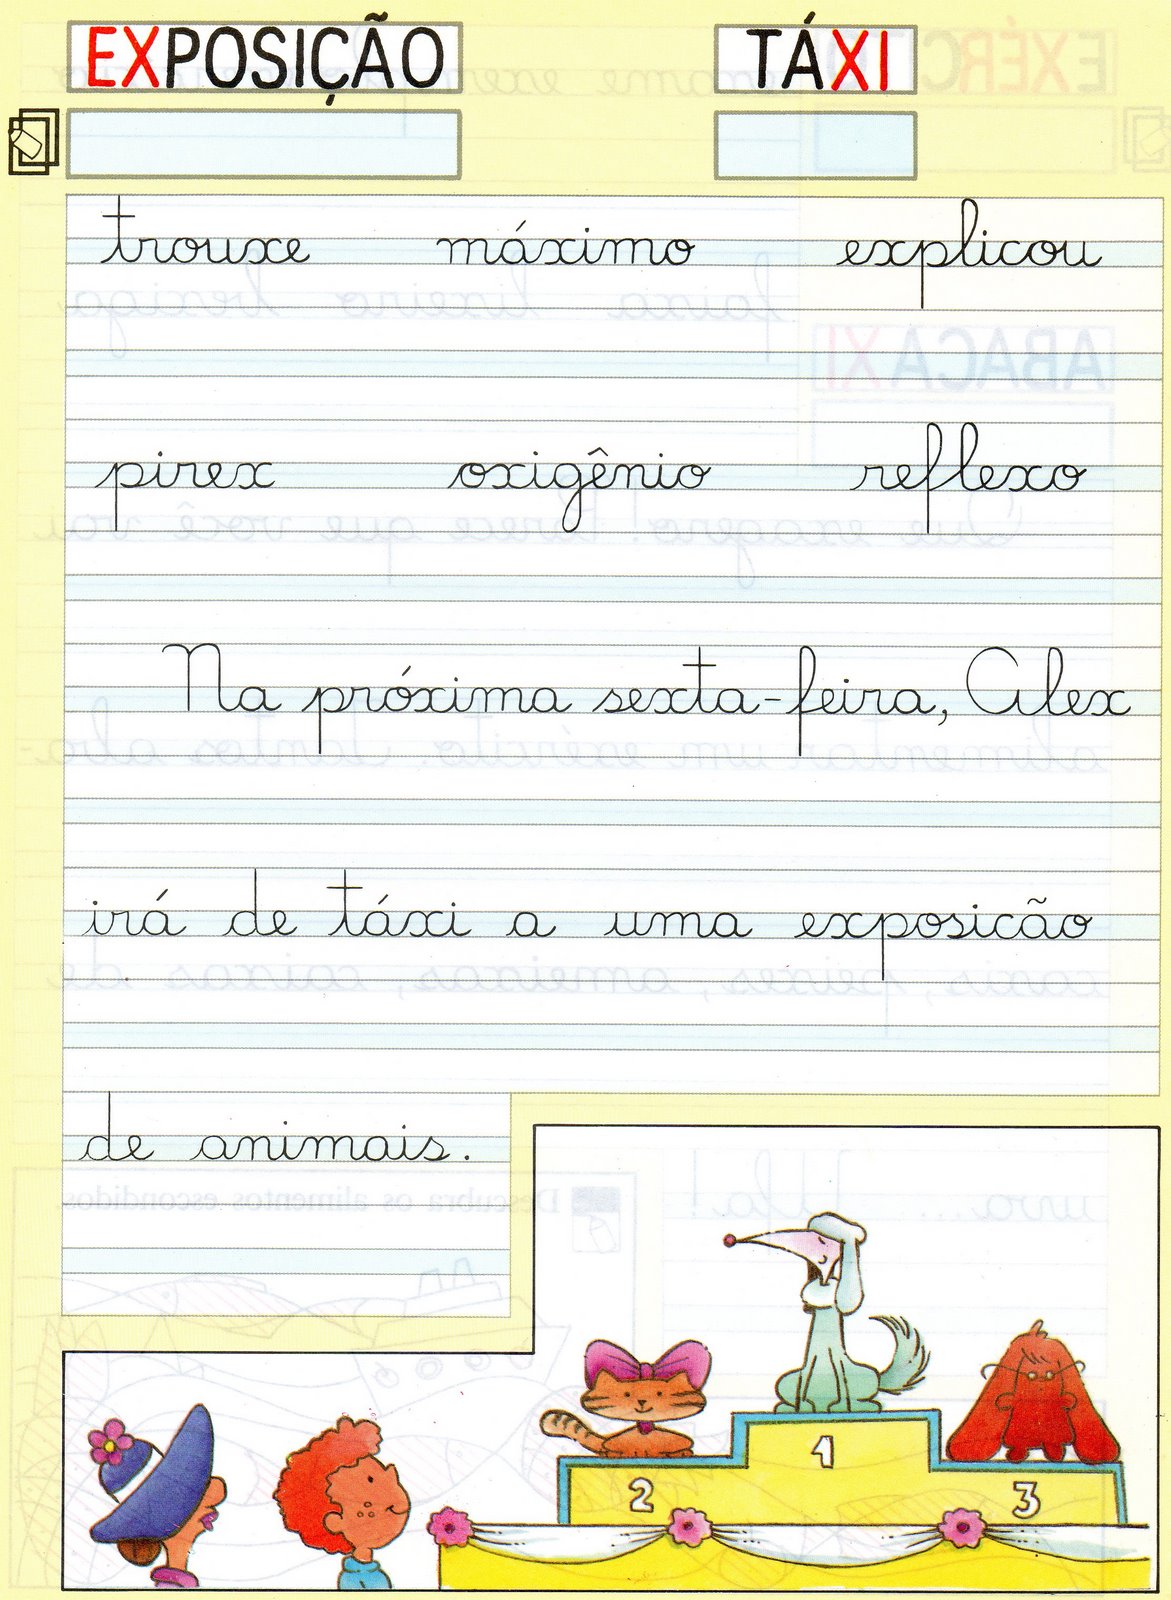 EXPOSIÇÃO TÁXI
trouxe máximo explicou
pirex oxigênio reflexo
Na próxima sexta-feira, Alex
irá de táxi a uma exposicão
de animais.
1
2
3